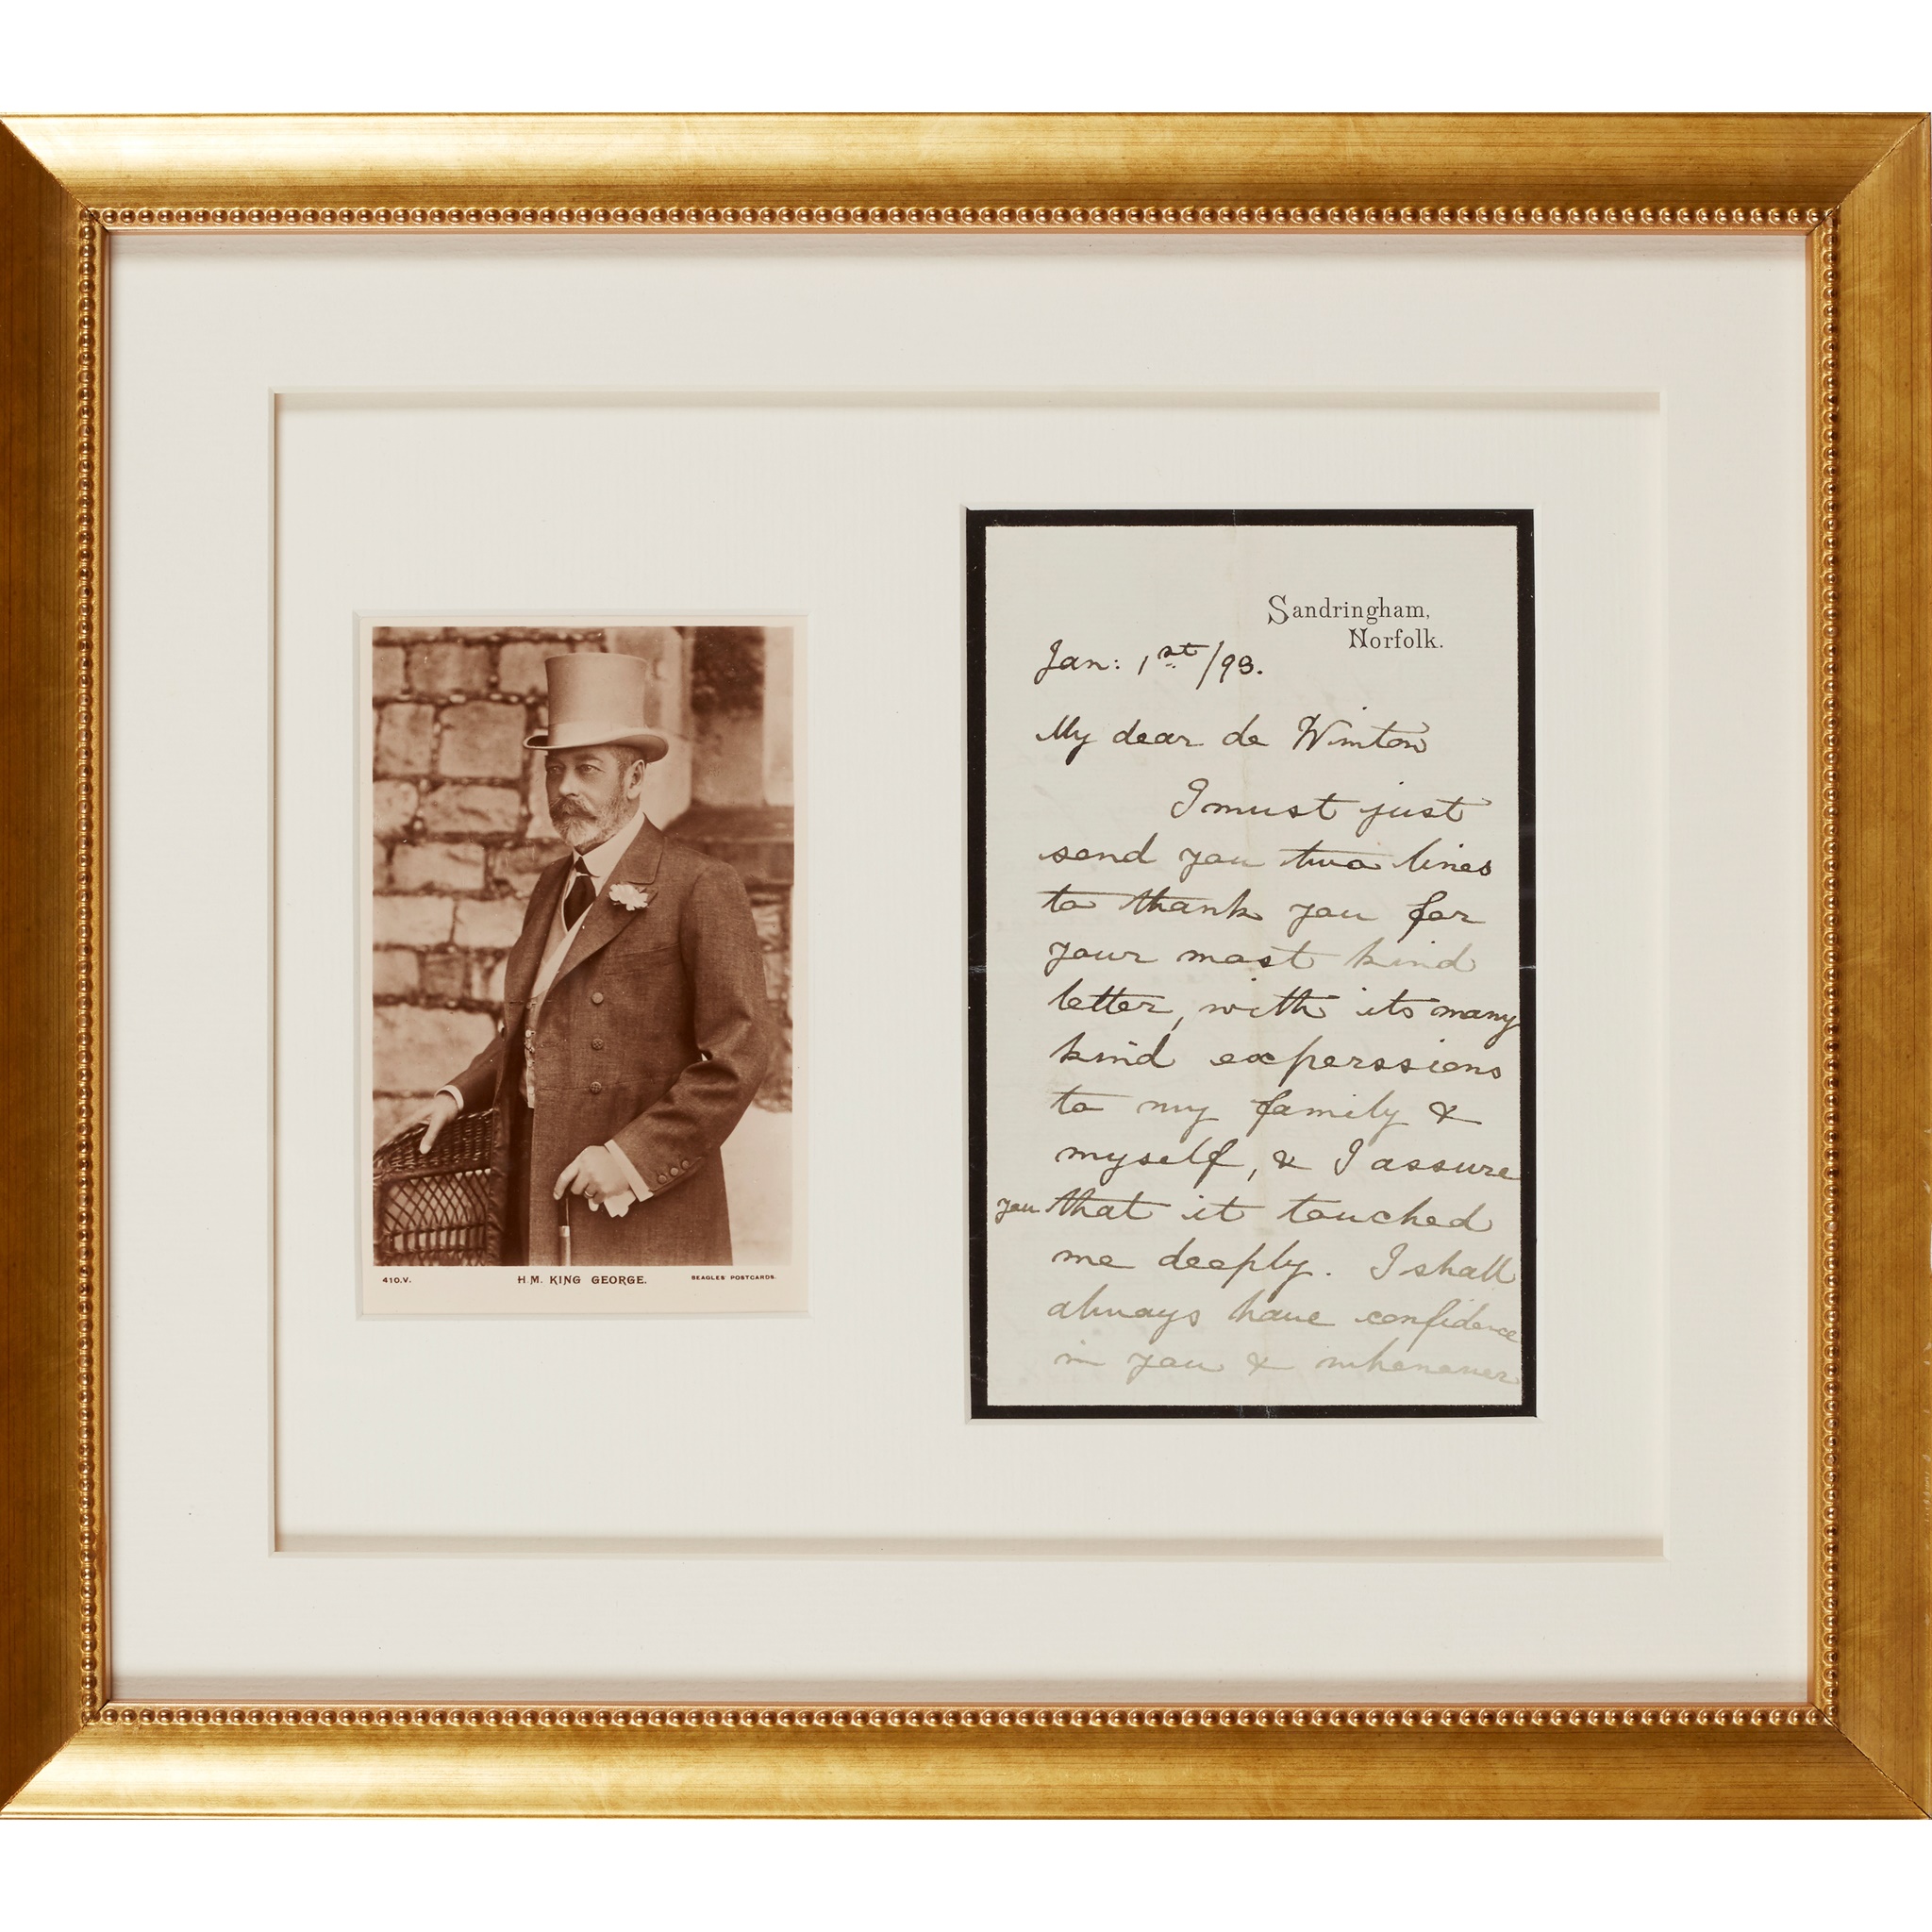 410.V.
H.M. KING GEORGE.
BEAGLES' POSTCARDS.
Sandringham,
Norfolk.
Jan: 1st/93.
My dear de Winton
I must just
send you two lines
to thank you for
your most kind
letter, with its many
kind experssions
to my family &
myself, & I assure
you that it touched
me deeply. I shall
always have confidence
in you & whenever